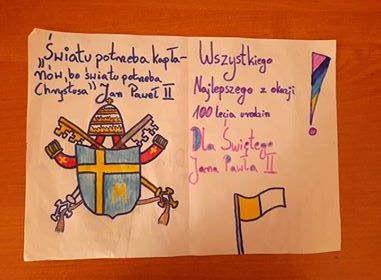 „Światu potrzeba kapła-
nów, bo światu potrzeba
Chrystusa" Jan Paweł II
Wszystkiego
Najlepszego z okazji
100 lecia urodzin
Dla Świętego
Jana Pawła II
!
M